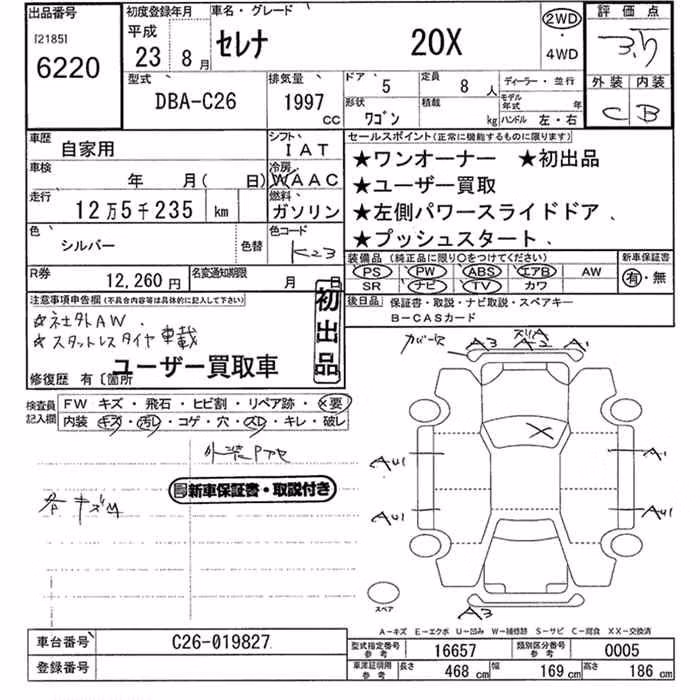 出品番号
[2185]
6220
初度登録年月
平成
23 8月
車名・グレード
セレナ 20X
2WD
・
4WD
評価点
3.5
外装 内装
C B
型式
DBA-C26
排気量
1997 cc
ドア 5
形状 ワゴン
定員 8人
積載 kg
ディーラー・並行
モデル年式 年
ハンドル 左・右
車歴 自家用
シフト IAT
車検 年 月( 日)
冷房 WAAC
走行 12万5千235 km
燃料 ガソリン
色 シルバー 色替
色コード K23
R券 12,260円
名変通知期限 月 日
セールスポイント(正常に機能するものに限ります)
★ワンオーナー ★初出品
★ユーザー買取
★左側パワースライドドア、
★プッシュスタート、
装備品 (純正品に限り○をつけてください)
PS PW ABS エアB AW
SR ナビ TV カワ
新車保証書
有・無
後日品 保証書・取説・ナビ取説・スペアキー
B-CASカード
注意事項申告欄(不具合内容等は具体的に記入して下さい)
☆社外AW.
☆スタットレスタイヤ車載
ユーザー買取車
初出品
修復歴 有〔箇所
検査員記入欄
FW キズ・飛石・ヒビ割・リペア跡・×要
内装 キズ・汚レ・コゲ・穴・スレ・キレ・破レ
新車保証書・取説付き
各キズ
A3 A2 A1
AU1 A1
AU1 AU1
スペア
A3
A-キズ E-エクボ U-凹み W-補修跡 S-サビ C-腐食 XX-交換済
車台番号 C26-019827
登録番号
型式指定番号参考 16657
類別区分番号参考 0005
車庫証明用参考 長さ 468 cm 幅 169 cm 高さ 186 cm